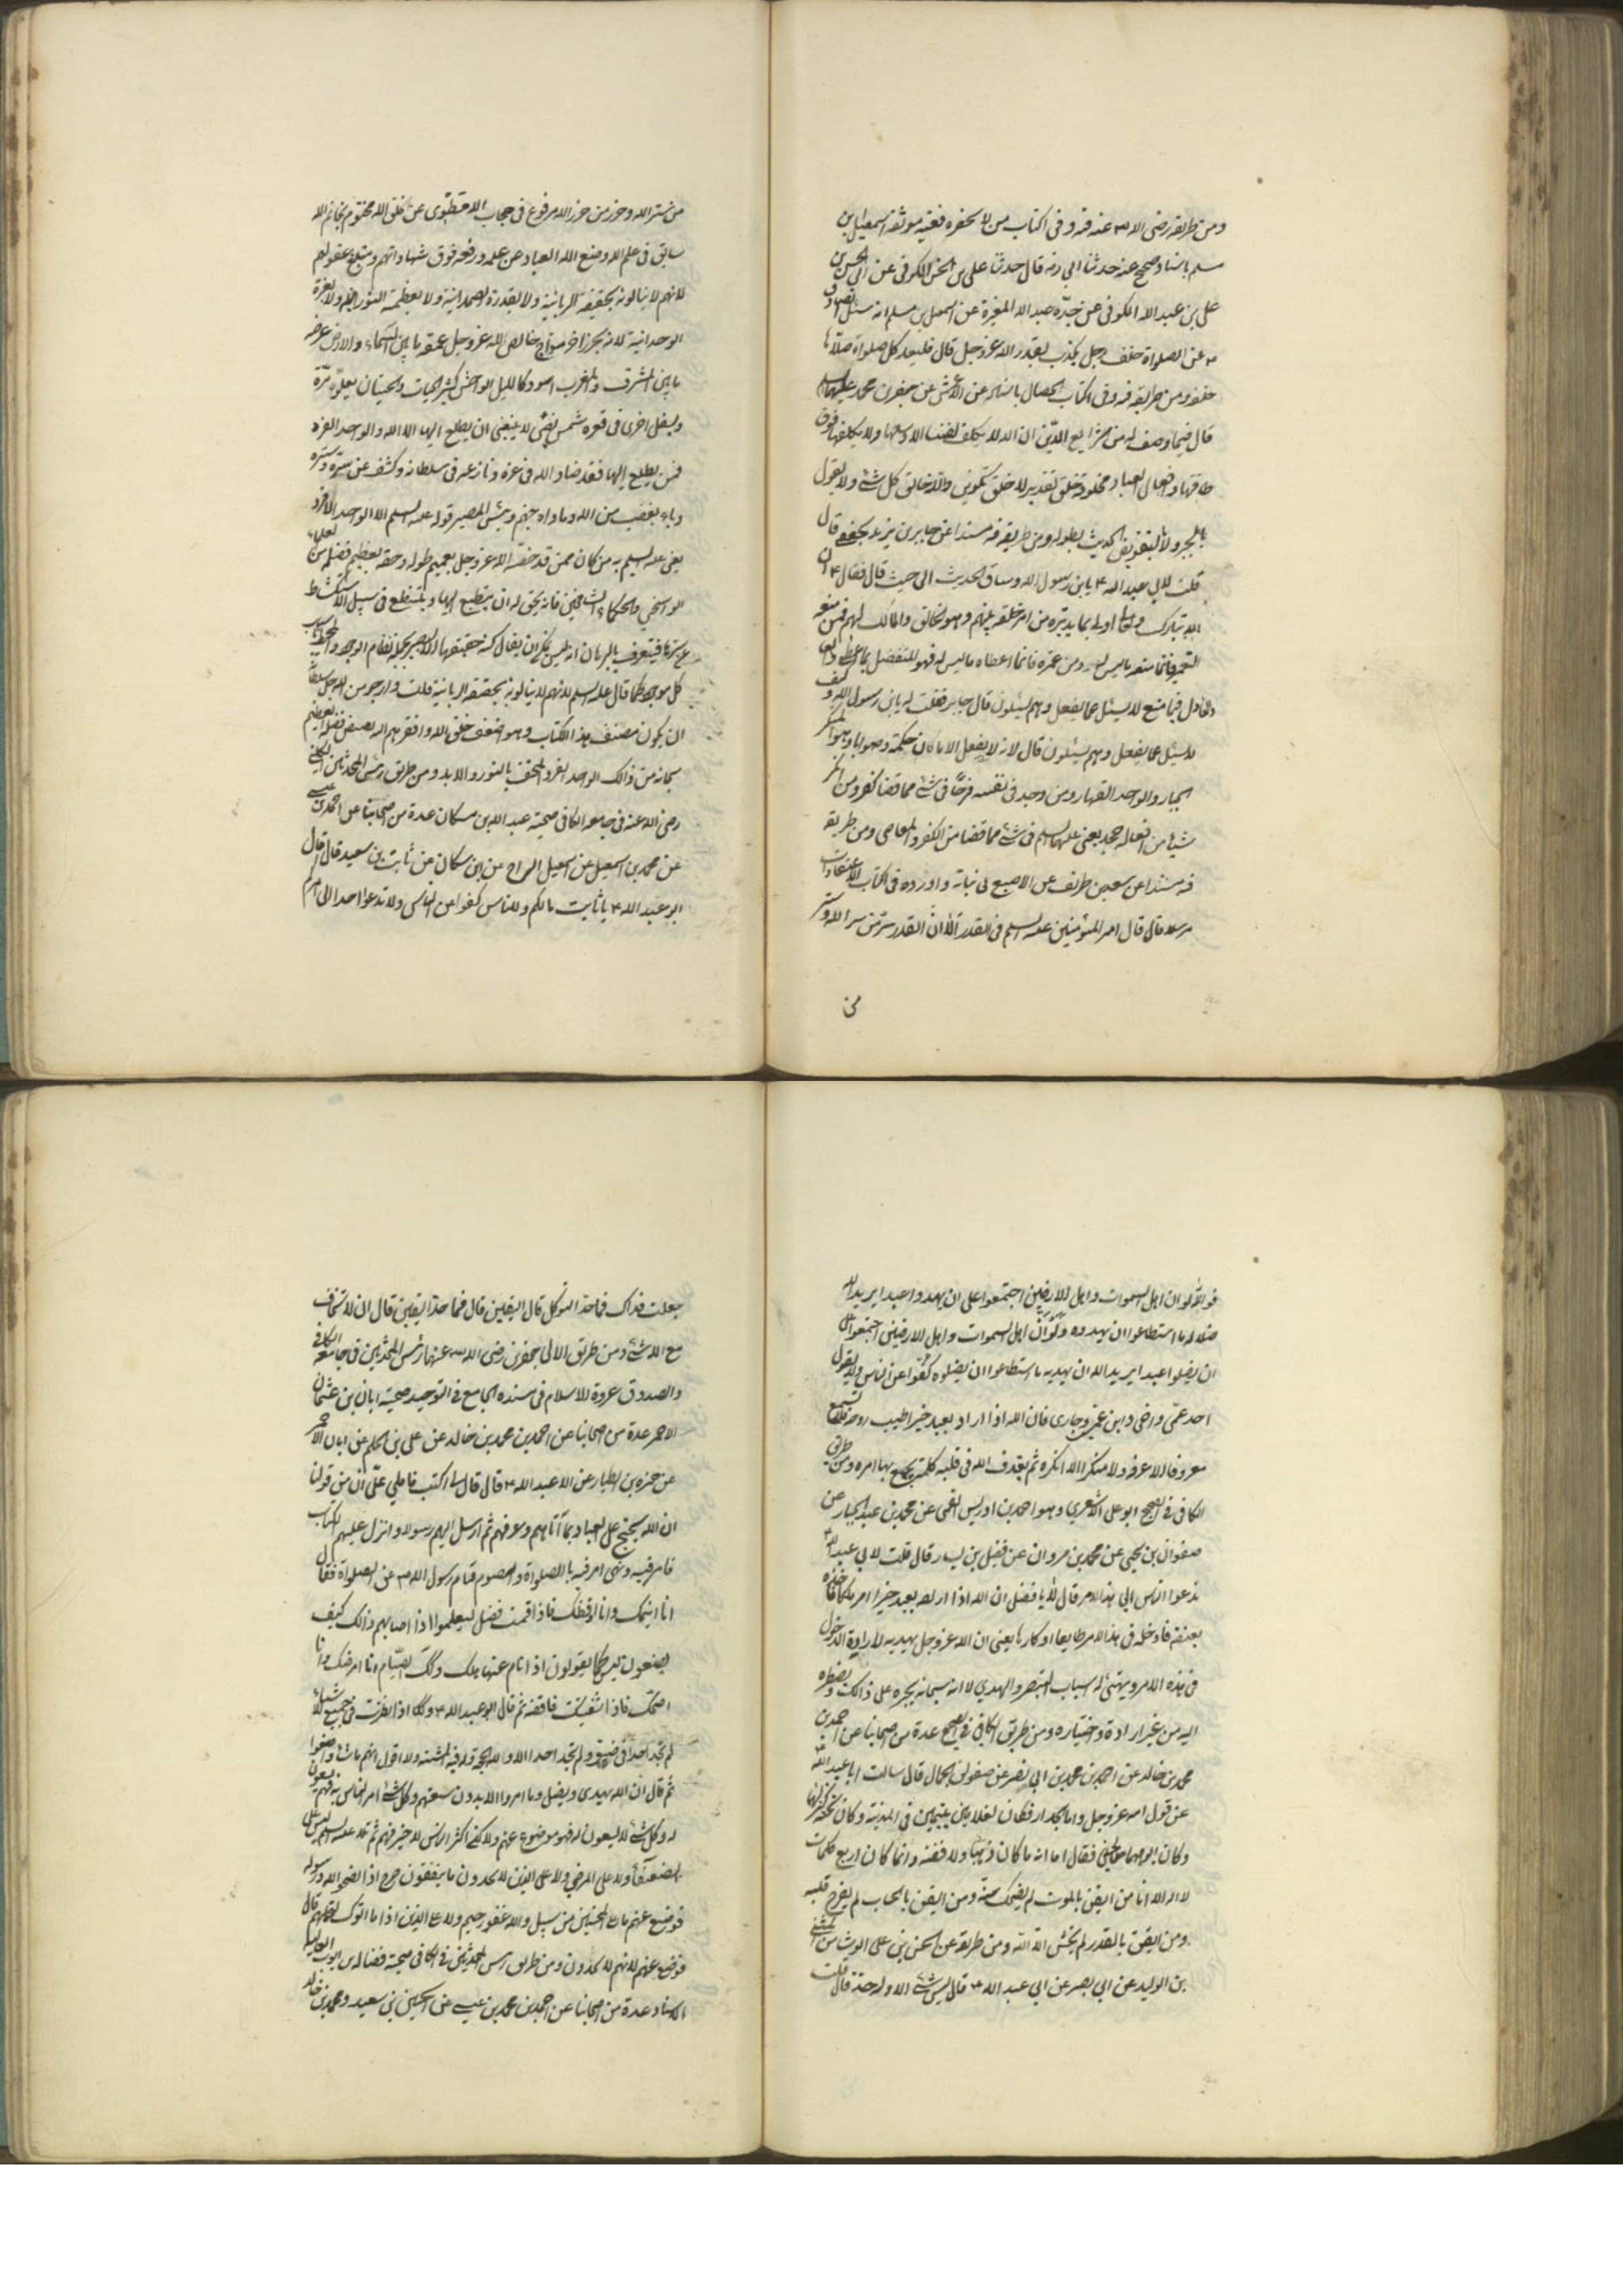 ومن طريقه رضى الله عنه فيه وفى الكتاب من لا يحضره فقيه موثقة اسمعيل بن
مسلم باسناد صحيح عنه حدثنا ابى رضه قال حدثنا على بن الحسن الكوفى عن ابى الحسن بن
على بن عبد الله الكوفى عن جده عبد الله المغيرة عن اسمعيل بن مسلم انه سئل الصادق
ع عن الصلوة خلف رجل يكذب بقدر الله عز وجل قال فليعد كل صلواة صلاها
خلفه ومن طريقه فيه وفى الكتاب الخصال باسناده عن الاعمش عن جعفر بن محمد عليهما السلم
قال فيما وصف له من شرايع الدين ان الله لا يكلف نفسا الا وسعها ولا يكلفها فوق
طاقتها وافعال العباد مخلوقة خلق تقدير لا خلق تكوين والله خالق كل شئ ولا يقول
بالجبر ولا بالتفويض الحديث بطوله ومن طريقه فيه مسندا عن جابر بن يزيد الجعفى قال
قلت لابى عبد الله ع يا بن رسول الله وساق الحديث الى حيث قال فقال ع ان
الله تبارك وتعالى اولى بما يدبره من امر خلقه منهم وهو الخالق والمالك لهم فمن منعه
التعمير فانما منعه ما ليس له ومن عمره فانما اعطاه ما ليس له فهو المتفضل بما اعطى
وعادل فيما منع لا يسئل عما يفعل وهم يسئلون قال جابر فقلت له يا بن رسول الله وكيف
لا يسئل عما يفعل وهم يسئلون قال لانه لا يفعل الا ما كان حكمة وصوابا وهو المتكبر
الجبار والواحد القهار ومن وجد فى نفسه حرجا فى شئ مما قضا كفر ومن انكر
شيئا من افعاله جحد يعنى عليه السلم فى شئ مما قضا من الكفر والمعاصى ومن طريقه
فيه مسندا عن سعد بن طريف عن الاصبغ بن نباتة واورده فى الكتاب الاعتقادات
مرسلا قال قال امير المؤمنين عليه السلم فى القدر الا ان القدر سر من سر الله وستر
من
من ستر الله وحرز من حرز الله مرفوع فى حجاب الله مطوى عن خلق الله مختوم بخاتم الله
سابق فى علم الله وضع الله العباد عن علمه ورفعه فوق شهاداتهم ومبلغ عقولهم
لانهم لا ينالونه بحقيقة الربانية ولا بقدرة الصمدانية ولا بعظمة النورانية ولا بعزة
الوحدانية لانه بحر زاخر مواج خالص لله عز وجل عمقه ما بين السماء والارض عرضه
ما بين المشرق والمغرب اسود كالليل الدامس كثير الحيات والحيتان يعلو مرة
ويسفل اخرى فى قعره شمس تضئ لا ينبغى ان يطلع اليها الا الله والواحد الفرد
فمن يطلع اليها فقد ضاد الله فى عزه ونازعه فى سلطانه وكشف عن ستره وسره
وباء بغضب من الله وماواه جهنم وبئس المصير قوله عليه السلم الا الواحد الفرد
يعنى عليه السلم به من كان ممن قد خصه الله عز وجل بعميم طوله وحقه بعظيم فضله من العلماء
الراسخين والحكماء الشامخين فانه يحق له ان يتطلع اليها ويستطلع فى سبيل الاستكشاط
عن سترها فيتعرف بالبرهان انه ليس يمكن ان ينال كنه حقيقتها الا البصير بجملة نظام الوجود والمحيط باسباب
كل موجود كما قال عليه السلم لانهم لا ينالونه بحقيقة الربانية قلت وارجو من الله جل سلطانه
ان يكون مصنف هذا الكتاب وهو اضعف خلق الله وافقرهم اليه ببعض فضله العظيم
سبحانه من ذالك الواحد الفرد المحتف بالنور والايد ومن طريق رئيس المحدثين الكلينى
رضى الله عنه فى جامعه الكافى صحيحة عبد الله بن مسكان عدة من اصحابنا عن احمد بن محمد بن عيسى
عن محمد بن اسمعيل عن اسمعيل السراج عن ابن مسكان عن ثابت بن سعيد قال قال
ابو عبد الله ع يا ثابت ما لكم وللناس كفوا عن الناس ولا تدعوا احدا الى امركم
فوالله لو ان اهل السموات واهل الارضين اجتمعوا على ان يهدوا عبدا يريد الله
ضلاله ما استطاعوا ان يهدوه ولو ان اهل السموات واهل الارضين اجتمعوا على
ان يضلوا عبدا يريد الله ان يهديه ما استطاعوا ان يضلوه كفوا عن الناس ولا يقول
احد عمى واخى وابن عمى وجارى فان الله اذا اراد بعبد خيرا طيب روحه فلا يسمع
معروفا الا عرفه ولا منكرا الا انكره ثم يقذف الله فى قلبه كلمة يجمع بها امره ومن طريق
الكافى فى الصحيح ابو على الاشعرى وهو احمد بن ادريس القمى عن محمد بن عبد الجبار عن
صفوان بن يحيى عن محمد بن مروان عن فضيل بن يسار قال قلت لابى عبد الله ع
ندعوا الناس الى هذا الامر قال لا يا فضيل ان الله اذا اراد بعبد خيرا امر ملكا فاخذه
بعنقه فادخله فى هذا الامر طايعا او كارها يعنى ان الله عز وجل يهديه لارادة الدخول
فى هذه الامر ويهيئ له اسباب التبصر والهدى لا انه سبحانه يجبره على ذالك ويضطره
اليه من غير ارادة واختياره ومن طريق الكافى فى الصحيح عدة من اصحابنا عن احمد بن
محمد بن خالد عن احمد بن محمد بن ابى نصر عن صفوان الجمال قال سالت ابا عبد الله
عن قول الله عز وجل واما الجدار فكان لغلامين يتيمين فى المدينة وكان تحته كنز لهما
وكان ابوهما صالحا فقال اما انه ما كان ذهبا ولا فضة وانما كان اربع كلمات
لا اله الا انا من ايقن بالموت لم يضحك سنه ومن ايقن بالحساب لم يفرح قلبه
ومن ايقن بالقدر لم يخش الا الله ومن طريقه عن الحسن بن على الوشا عن المثنى
بن الوليد عن ابى بصير عن ابى عبد الله ع قال ليس شئ الا وله حد قال قلت
جعلت فداك فما حد التوكل قال اليقين قال فما حد اليقين قال ان لا تخاف
مع الله شئ ومن طريق الى ابى جعفرين رضى الله عنهما رئيس المحدثين فى جامعه الكافى
والصدوق عروة الاسلام فى مسنده الجامع فى التوحيد صحيحة ابان بن عثمان
الاحمر عدة من اصحابنا عن احمد بن محمد بن خالد عن على بن الحكم عن ابان الاحمر
عن حمزه بن الطيار عن ابى عبد الله ع قال قال لى اكتب فاملى على ان من قولنا
ان الله يحتج على العباد بما آتاهم وعرفهم ثم ارسل اليهم رسولا وانزل عليهم الكتاب
فامر فيه ونهى امر فيه بالصلواة والصوم فنام رسول الله ص عن الصلواة فقال
انا انيمك وانا اوقظك فاذا قمت فصل ليعلموا اذا اصابهم ذالك كيف
يصنعون ليس كما يقولون اذا نام عنها هلك وكذلك الصيام انا امرضك وانا
اصحك فاذا شفيتك فاقضه ثم قال ابو عبد الله ع وكذلك اذا نظرت فى جميع الاشياء
لم تجد احدا فى ضيق ولم تجد احدا الا ولله الحجة وله فيه المشية ولا اقول انهم ما شاءوا صنعوا
ثم قال ان الله يهدى ويضل وما امروا الا بدون سعتهم وكل شئ امر الناس به فهم يسعون
له وكل شئ لا يسعون له فهو موضوع عنهم ولكن اكثر الناس لا خير فيهم ثم تلا عليه السلم ليس على
الضعفاء ولا على المرضى ولا على الذين لا يجدون ما ينفقون حرج اذا نصحوا لله ورسوله
فوضع عنهم ما على المحسنين من سبيل والله غفور رحيم ولا على الذين اذا ما اتوك لتحملهم قال
فوضع عنهم لانهم لا يجدون ومن طريق رئيس المحدثين فى الكافى صحيحة فضالة بن ايوب
بالاسناد عدة من اصحابنا عن احمد بن محمد بن عيسى عن الحسين بن سعيد ومحمد بن خالد